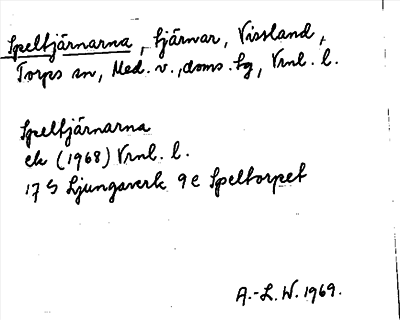 Speltjärnarna, tjärnar, Vissland,
Torps sn, Med. v., doms. tg, Vrnl. l.
Speltjärnarna
ek (1968) Vrnl. l.
17 G Ljungaverk 9 e Speltorpet
A.-L. W. 1969.